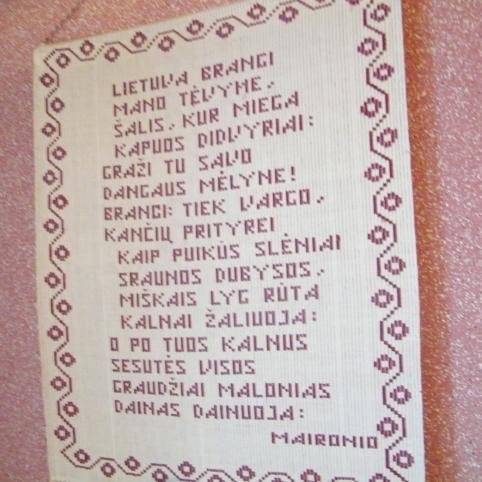 LIETUVA BRANGI
MANO TĖVYNE,
ŠALIS, KUR MIEGA
KAPUOS DIDVYRIAI:
GRAŽI TU SAVO
DANGAUS MĖLYNE!
BRANGI: TIEK VARGO,
KANČIŲ PRITYREI
KAIP PUIKŪS SLĖNIAI
SRAUNOS DUBYSOS,
MIŠKAIS LYG RŪTA
KALNAI ŽALIUOJA:
O PO TUOS KALNUS
SESUTĖS VISOS
GRAUDŽIAI MALONIAS
DAINAS DAINUOJA:
MAIRONIO